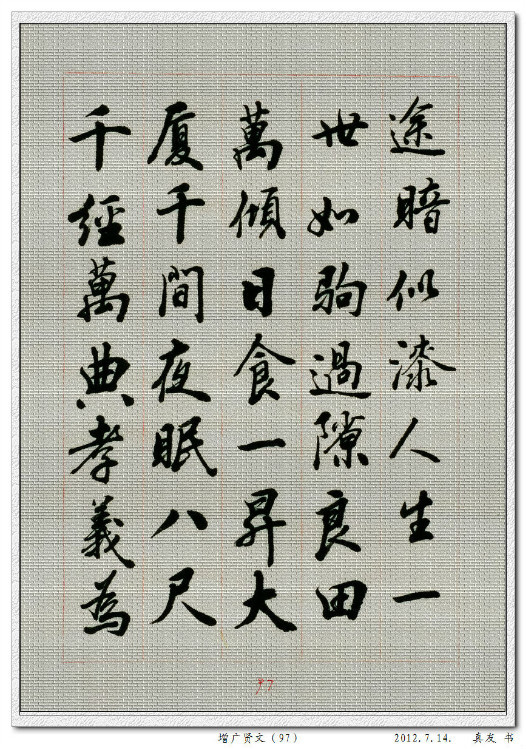 途暗似漆人生一
世如駒過隙良田
萬傾日食一昇大
厦千間夜眠八尺
千經萬典孝義為
97
增广贤文（97）
2012.7.14. 真发 书